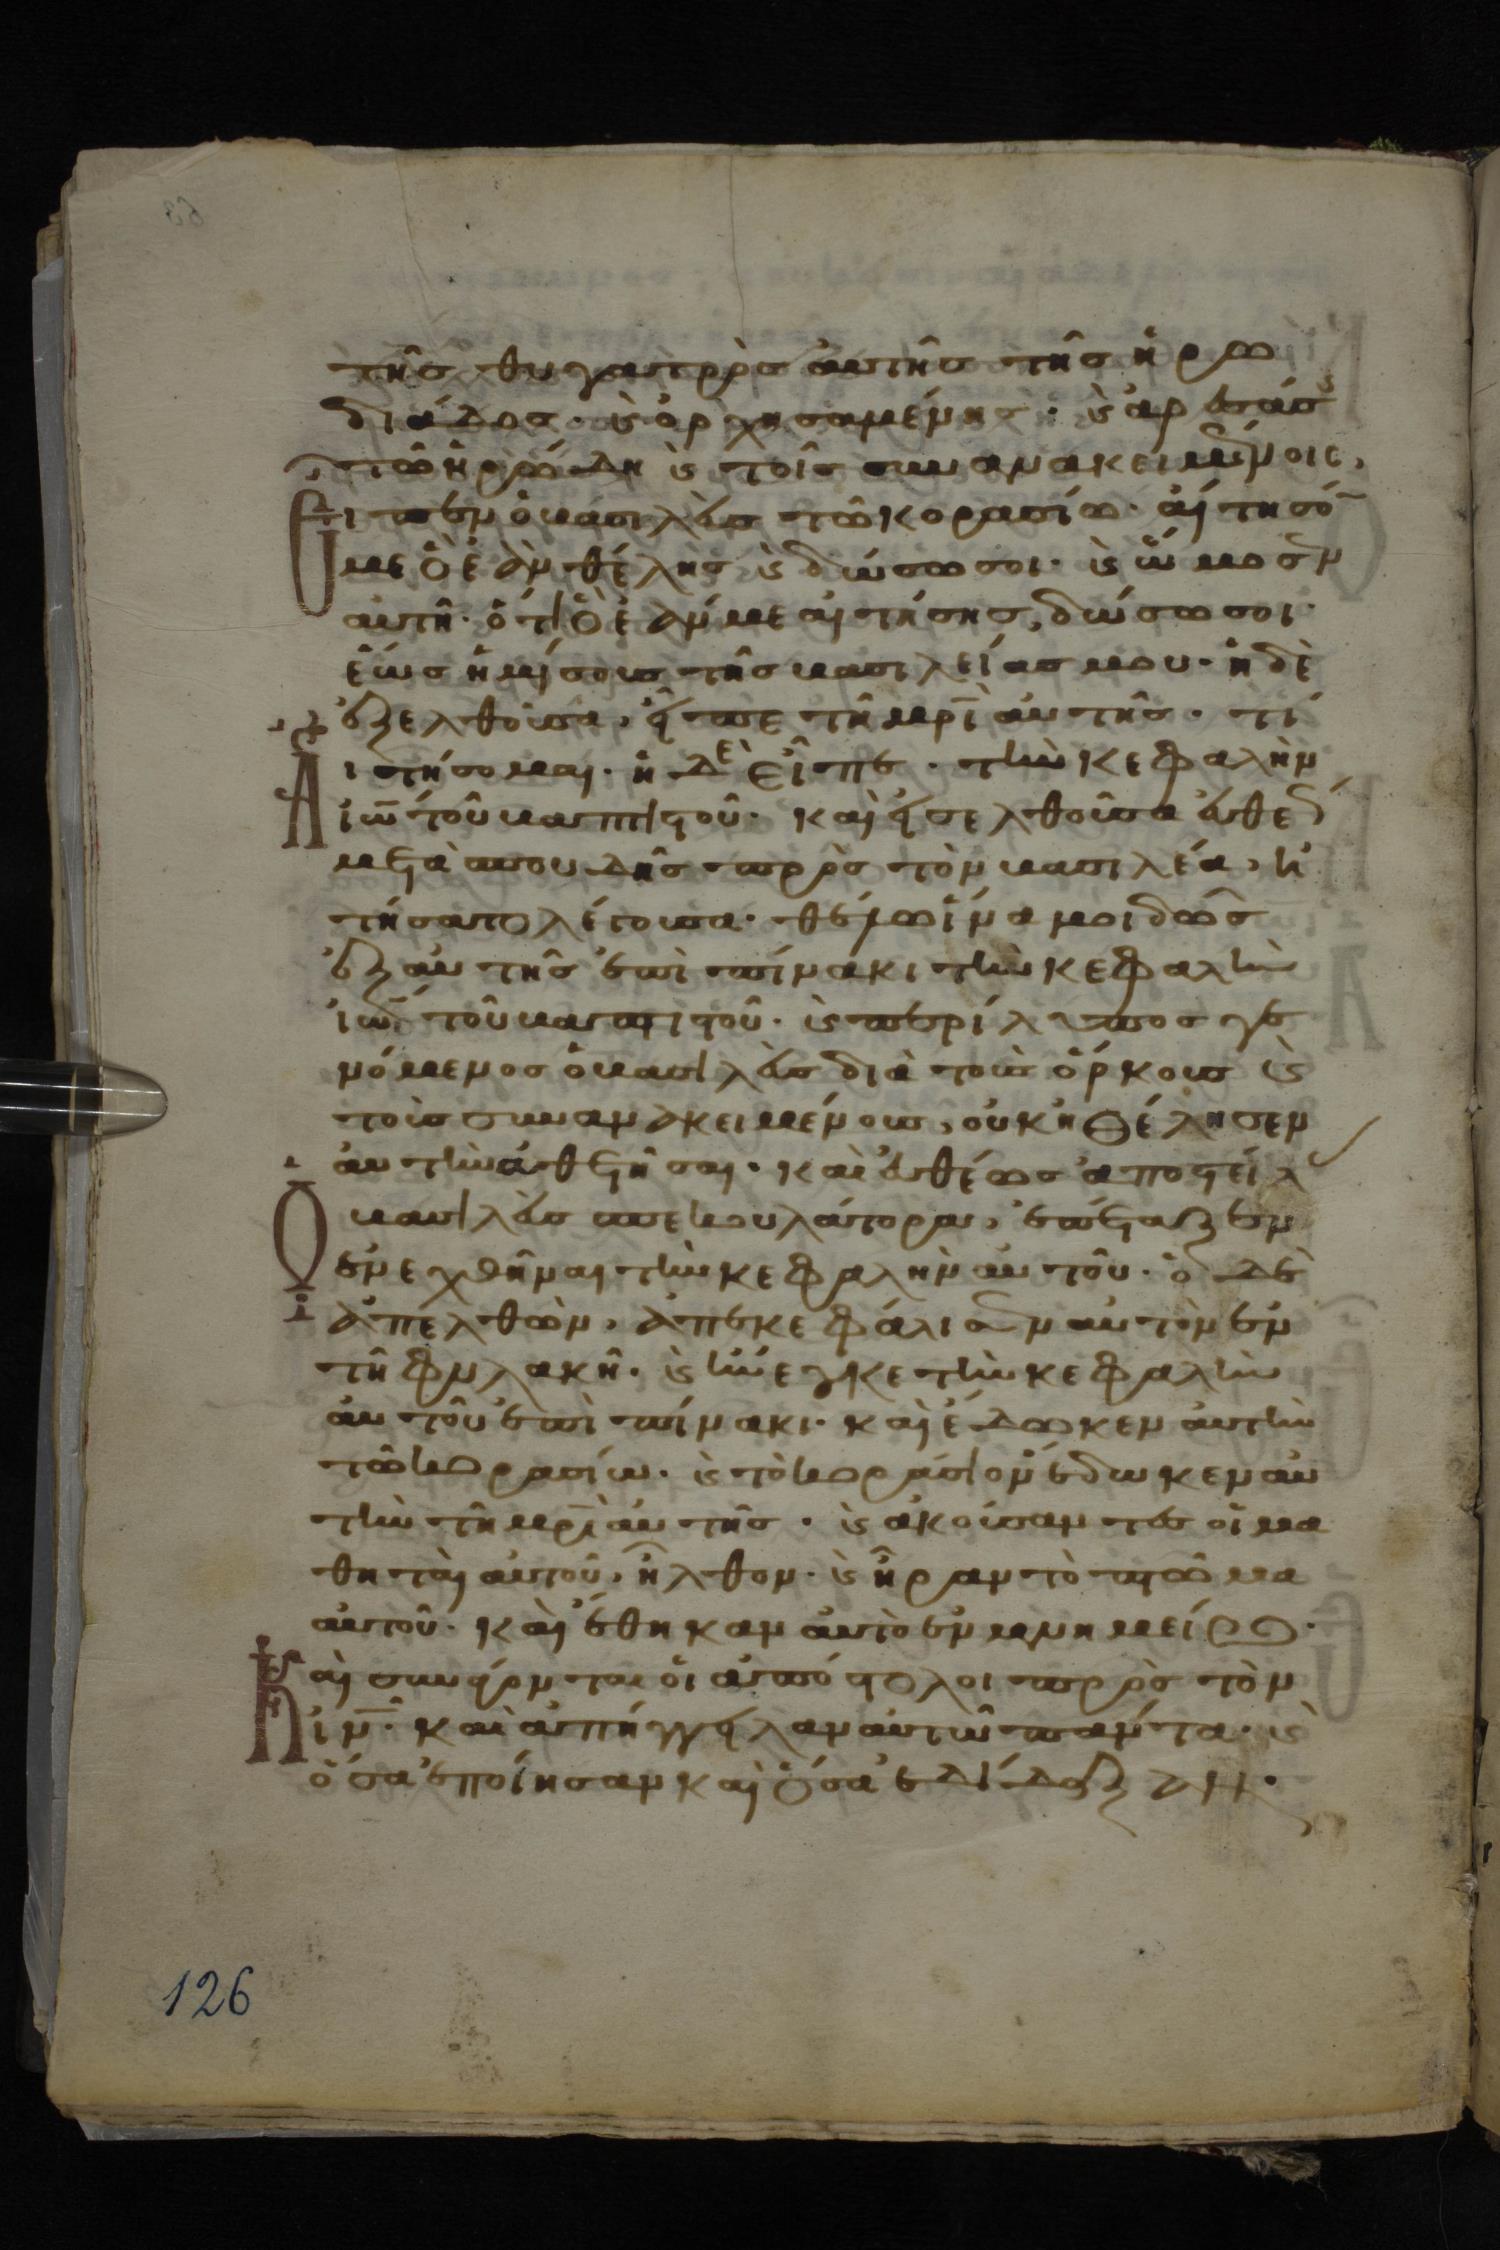 τῆς θυγατρὸς αὐτῆς τῆς ἡρω
διάδος· ϗ ὀρχησαμένης· ϗ ἀρεσάσ
τῶ ἡρώδη ϗ τοῖς συνανακειμένοις,
Εἶπεν ὁ βασιλεὺς τῶ κορασίω· αἴτησόν
με ὃ ἐὰν θέλης ϗ δώσω σοι· ϗ ὤμοσεν
αὐτῆ· ὅτι ὃ ἐάν με αἰτήσης, δώσω σοι·
ἕως ἡμίσους τῆς βασιλείας μου· ἡ δὲ
ἐξελθοῦσα, εἶπε τῆ μρὶ αὐτῆς· τί
Αἰτήσομαι· ἡ δὲ εἶπε· τὴν κεφαλὴν
ἰω τοῦ βαπτιστοῦ· καὶ εἰσελθοῦσα εὐθέως
μετὰ σπουδῆς πρὸς τὸν βασιλέα, ἠ
τήσατο λέγουσα· θέλω ἵνα μοι δῶς
ἐξ αὐτῆς ἐπὶ πίνακι τὴν κεφαλὴν
ἰω τοῦ βαπτιστοῦ· ϗ περίλυπος γε
νόμενος ὁ βασιλεὺς διὰ τοὺς ὅρκους ϗ
τοὺς συνανακειμένους, οὐκ ἠθέλησεν
αὐτὴν ἀθετῆσαι· καὶ εὐθέως ἀποστείλ
Ὁ βασιλεὺς σπεκουλάτορα, ἐπέταξεν
ἐνεχθῆναι τὴν κεφαλὴν αὐτοῦ· ὁ δὲ
ἀπελθὼν, ἀπεκεφάλισεν αὐτὸν ἐν
τῆ φυλακῆ· ϗ ἤνεγκε τὴν κεφαλὴν
αὐτοῦ ἐπὶ πίνακι· καὶ ἔδωκεν αὐτὴν
τῶ κορασίω· ϗ τὸ κοράσιον ἔδωκεν αὐ
τὴν τῆ μρὶ αὐτῆς· ϗ ἀκούσαντες οἱ μα
θηταὶ αὐτοῦ, ἦλθον· ϗ ἦραν τὸ πτῶμα
αὐτοῦ· καὶ ἔθηκαν αὐτὸ ἐν μνημείω·
Καὶ συνάγονται οἱ ἀπόστολοι πρὸς τὸν
ἰν· καὶ ἀπήγγειλαν αὐτῶ πάντα· ϗ
ὅσα ἐποίησαν καὶ ὅσα ἐδίδαξαν·
126
63